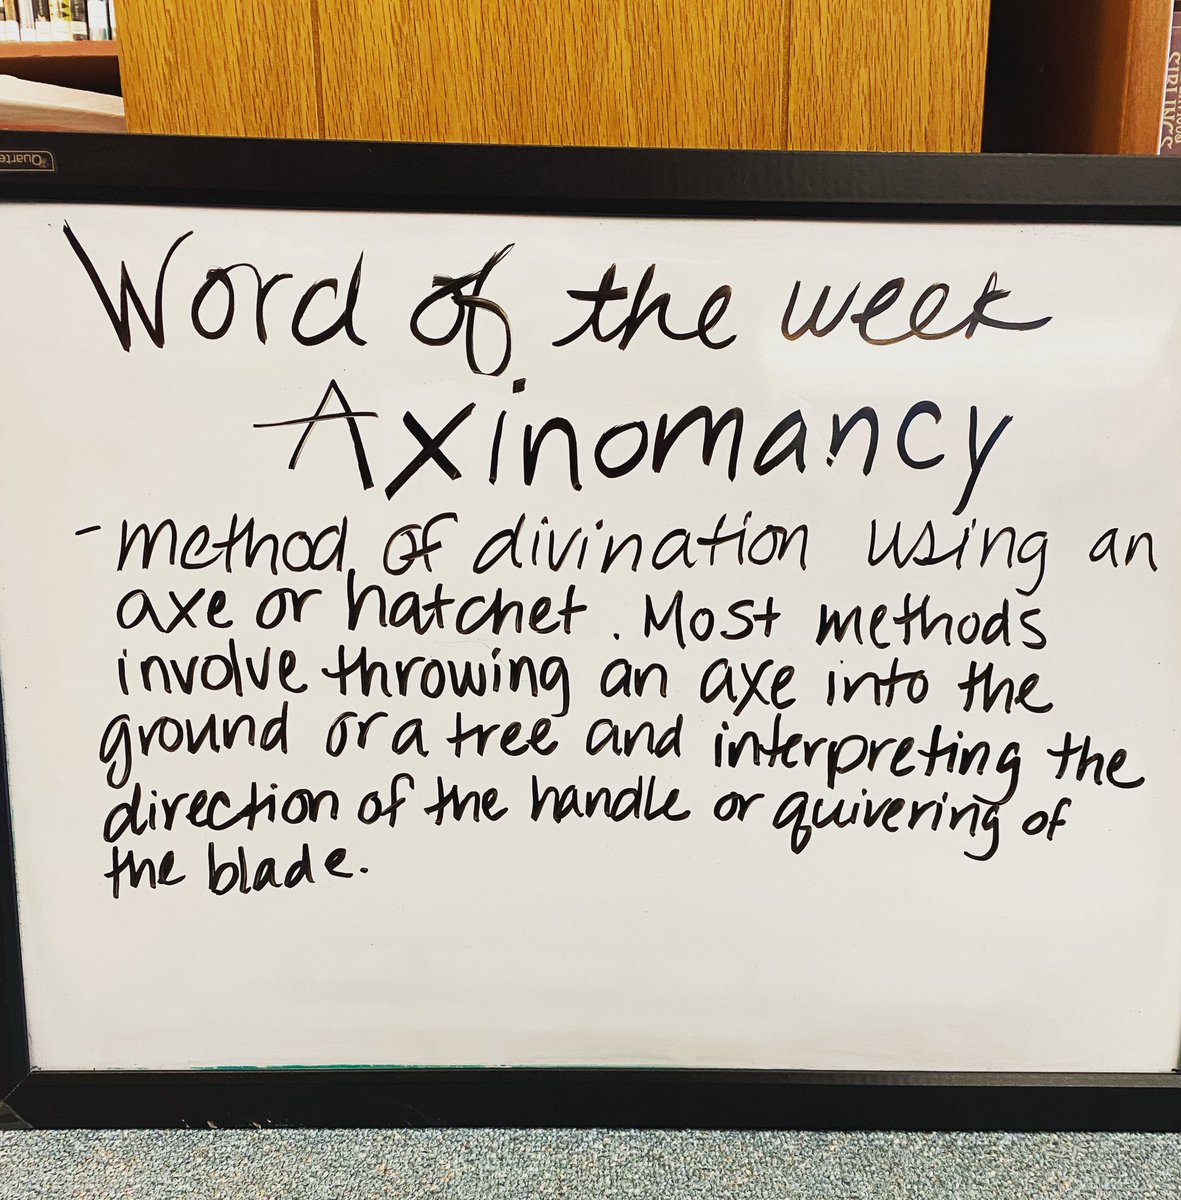 Quarte
STIRLINGS
Word of the week
Axinomancy
- method of divination using an
axe or hatchet. Most methods
involve throwing an axe into the
ground or a tree and interpreting the
direction of the handle or quivering of
the blade.